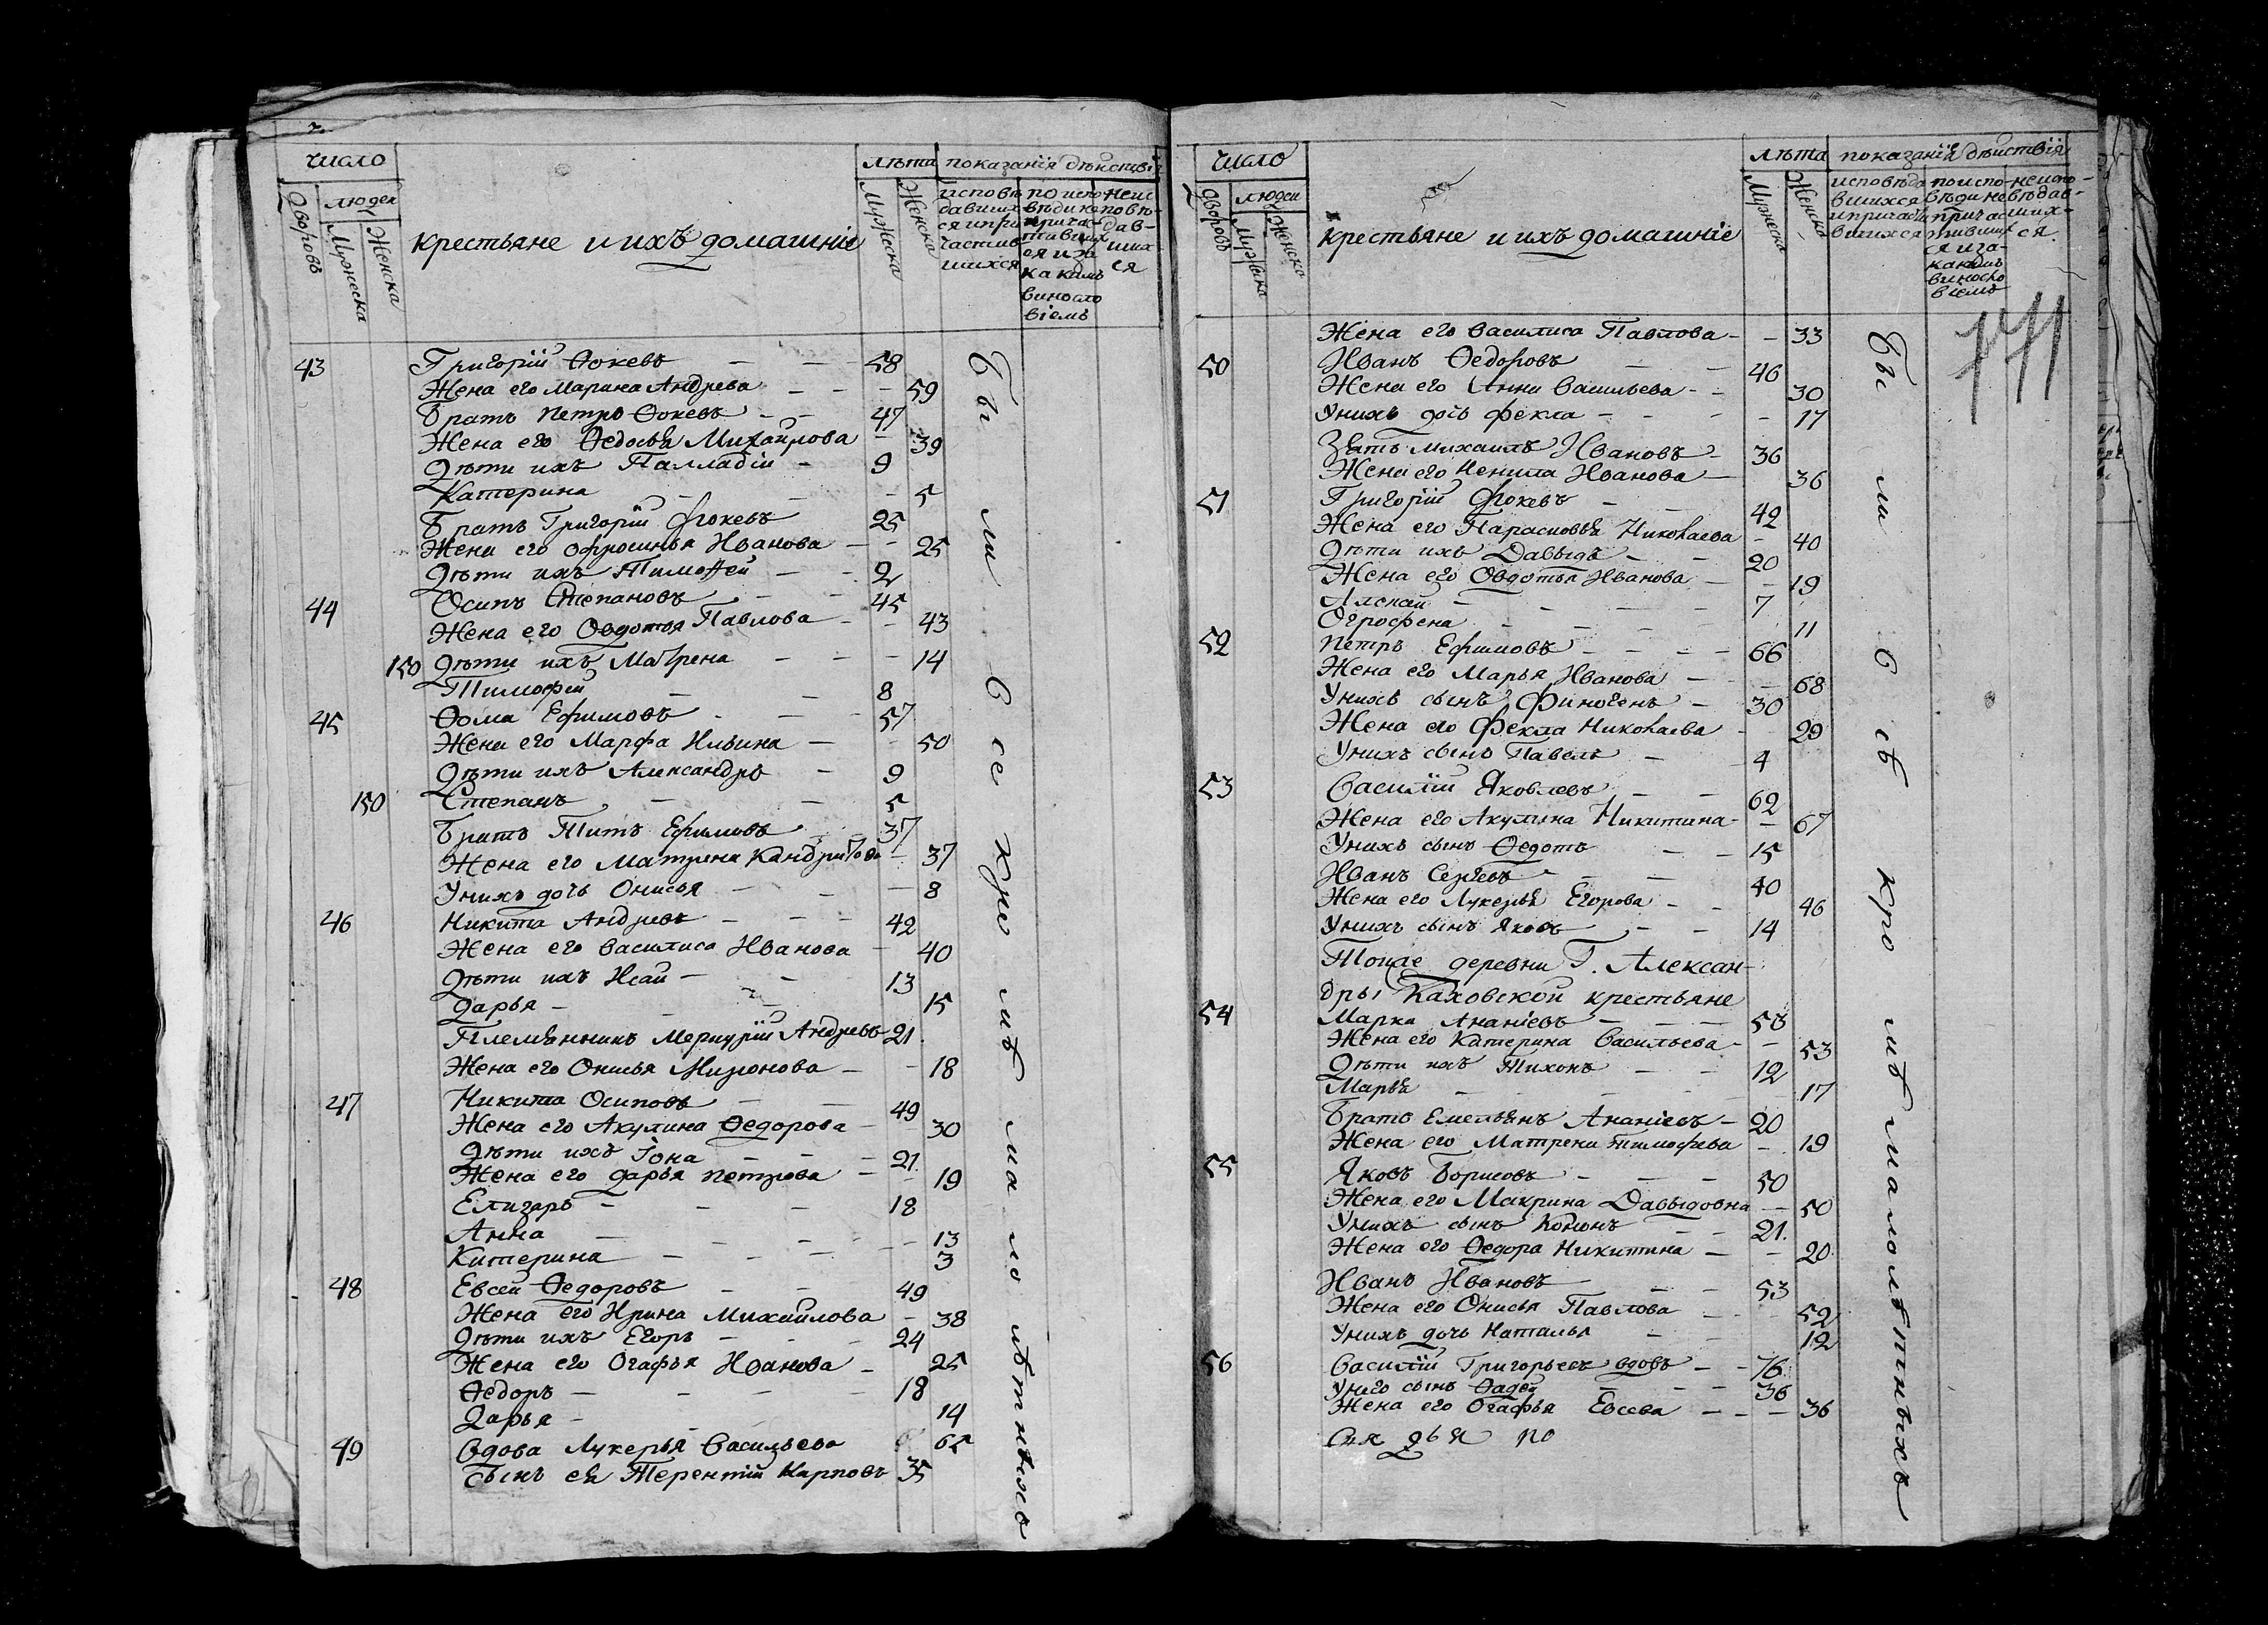 число
лѣта показанїя дѣиствїѧ
дворовъ
людеи
Мужеска
Женска
крестьяне и ихъ домашнїе
Мужеска
Женска
исповѣ
давших
ся и при
частив
шихся
по испо
вѣди не
прича
тившх
ся и за
какимъ
виносло
вїемъ
неис
повѣ-
дав-
ших
ся
43 Григорїй Ѳокевъ 58
Жена его Марина Андрева 59
Братъ Петръ Ѳокевъ 47
Жена его Ѳедосья Михаилова 39
Дѣти ихъ Палладїи 9
Катерина 5
Братъ Григорїй Фокевъ 25
Жена его Офросинья Иванова 25
Дѣти ихъ Тимоѳей 2
44 Осипъ Степановъ 45
Жена его Овдотья Павлова 43
150 Дѣти ихъ Матрена 14
Тимофей 8
45 Ѳома Ефимовъ 57
Жена его Марфа Ильина 50
Дѣти ихъ Александръ 9
150 Степанъ 5
Братъ Титъ Ефимовъ 37
Жена его Матрена Кандратова 37
У нихъ дочь Онисья 8
46 Никита Андревъ 42
Жена его Василиса Иванова 40
Дѣти ихъ Исай 13
Дарья 15
Племянникъ Меркурїй Андревъ 21
Жена его Онисья Миронова 18
47 Никита Осиповъ 49
Жена его Акулина Ѳедорова 30
Дѣти ихъ Їона 21
Жена его Дарья Петрова 19
Елизаръ 18
Анна 13
Катерина 3
48 Евсей Ѳедоровъ 49
Жена его Ирина Михайлова 38
Дѣти ихъ Егоръ 24
Жена его Огафья Иванова 25
Ѳедоръ 18
Дарья 14
49 Вдова Лукерья Васильева 65
Сынъ ея Терентїй Карповъ 35
Были все кромѣ малолѣтныхъ
число
лѣта показанїя дѣиствїя
дворовъ
людеи
Мужеска
Женска
крестьяне и ихъ домашнїе
Мужеска
Женска
исповѣда
вшихся
и причасти
вшихся
по испо-
вѣди не
причас
тивших
ся и за-
какимъ
виносло
вїемъ
неиспо-
вѣдав-
ших-
ся.
Жена его Василиса Павлова 33
50 Иванъ Ѳедоровъ 46
Жена его Анна Васильева 30
У нихъ дочь Фекла 17
Зять Михаилъ Ивановъ 36
Жена его Ненила Иванова 36
51 Григорїй Фокевъ 42
Жена его Парасковья Николаева 40
Дѣти ихъ Давыдъ 20
Жена его Овдотья Иванова 19
Алексѣй 7
Огрофена 11
52 Петръ Ефимовъ 66
Жена его Марья Иванова 68
У нихъ сынъ Финогенъ 30
Жена его Фекла Николаева 29
У нихъ сынъ Павелъ 4
53 Василїй Яковлевъ 62
Жена его Акулина Никитина 67
У нихъ сынъ Ѳедотъ 15
Иванъ Сергевъ 40
Жена его Лукерья Егорова 46
У нихъ сынъ Яковъ 14
Тоиже деревни Г. Алексан-
дры Каховской крестьяне
54 Марка Ананїевъ 58
Жена его Катерина Васильева 53
Дѣти ихъ Тихонъ 12
Марья 17
Братъ Емельянъ Ананїевъ 20
Жена его Матрена Тимофева 19
55 Яковъ Борисовъ 50
Жена его Макрина Давыдовна 50
У нихъ сынъ Кононъ 21.
Жена его Ѳедора Никитина 20
Иванъ Ивановъ 53
Жена его Онисья Павлова 52
У нихъ дочь Наталья 12
56 Василїй Григорьевъ вдовъ 76
У него сынъ Ѳадей 36
Жена его Огафья Евсева 36
Были всѣ кромѣ малолѣтныхъ